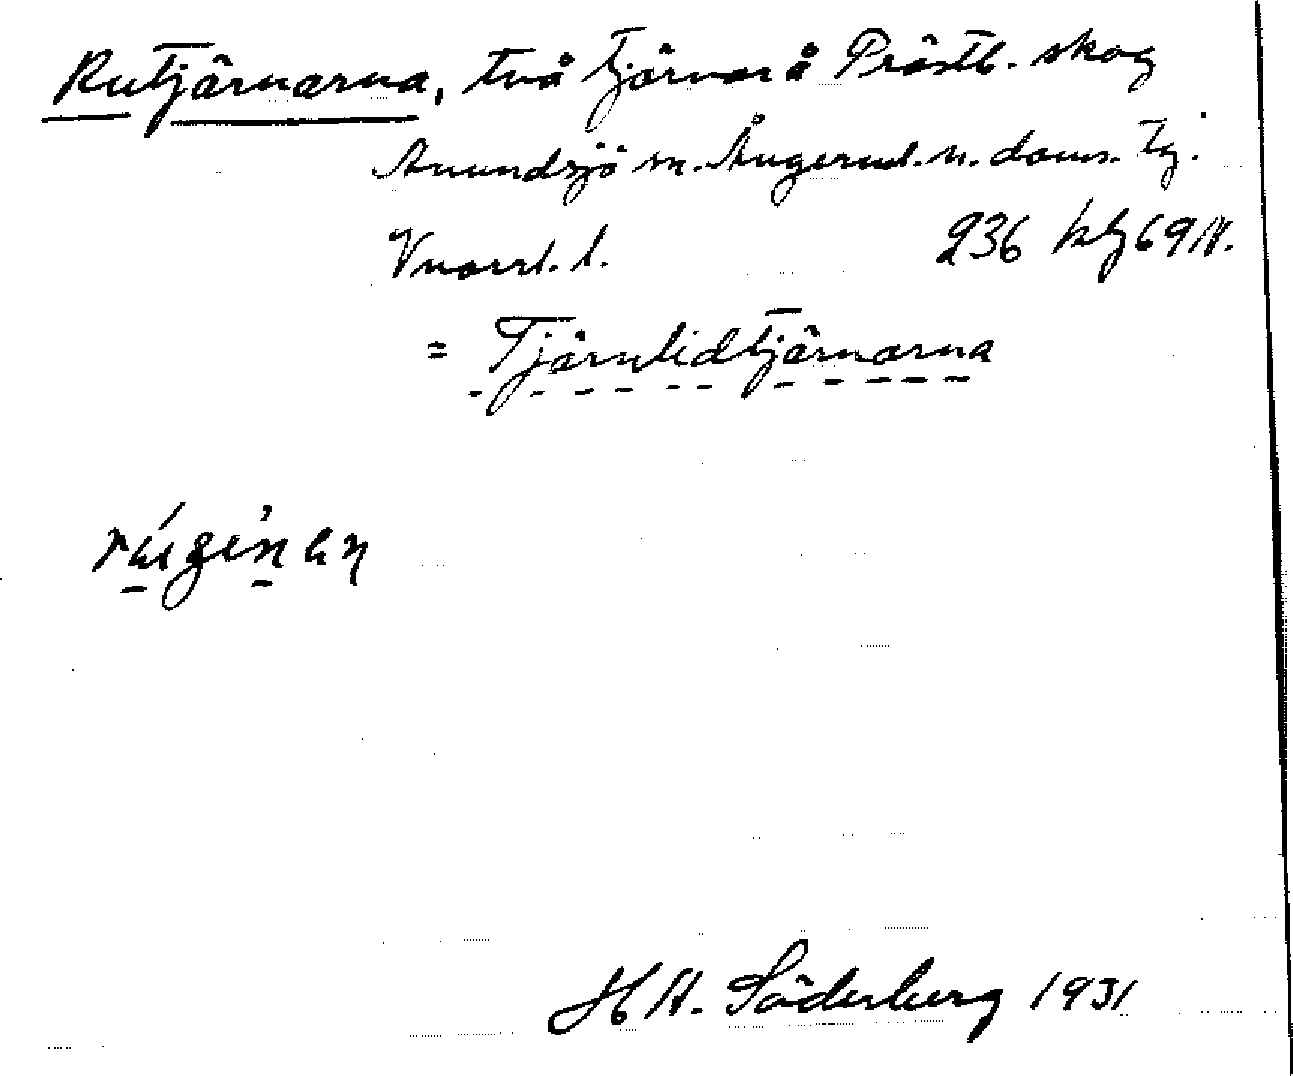 Rutjärnarna, två tjärnar å Prästb. skog
Anundsjö sn. Ångerml. n. doms. tg.
Vnorrl. l. 236 69 N.
= Tjärnlidtjärnarna
H A. Söderberg 1931